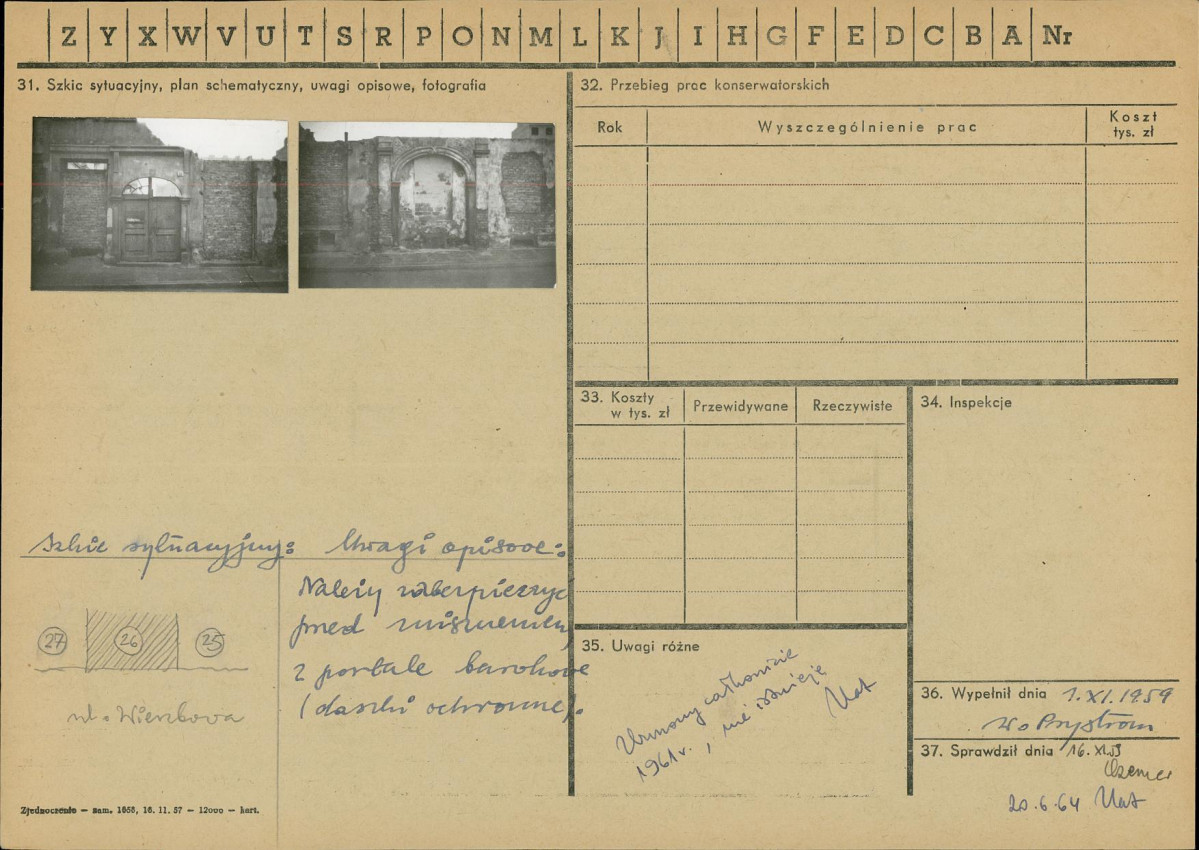 Z Y X W V U T S R P O N M L K J I H G F E D C B A Nr
31. Szkic sytuacyjny, plan schematyczny, uwagi opisowe, fotografia
Szkic sytuacyjny:
27 26 25
ul. Wierzbowa
Uwagi opisowe:
Należy zabezpieczyć
przed zniszczeniem
2 portale barokowe
(daszki ochronne).
Zjednoczenie — zam. 1658, 16. 11. 57 — 12000 — kart.
32. Przebieg prac konserwatorskich
Rok
Wyszczególnienie prac
Koszt
tys. zł
33. Koszty
w tys. zł
Przewidywane
Rzeczywiste
34. Inspekcje
35. Uwagi różne
całkowicie
1961 r., nie istnieje
36. Wypełnił dnia 1.XI.1959
37. Sprawdził dnia 16.XI.
20.6.64